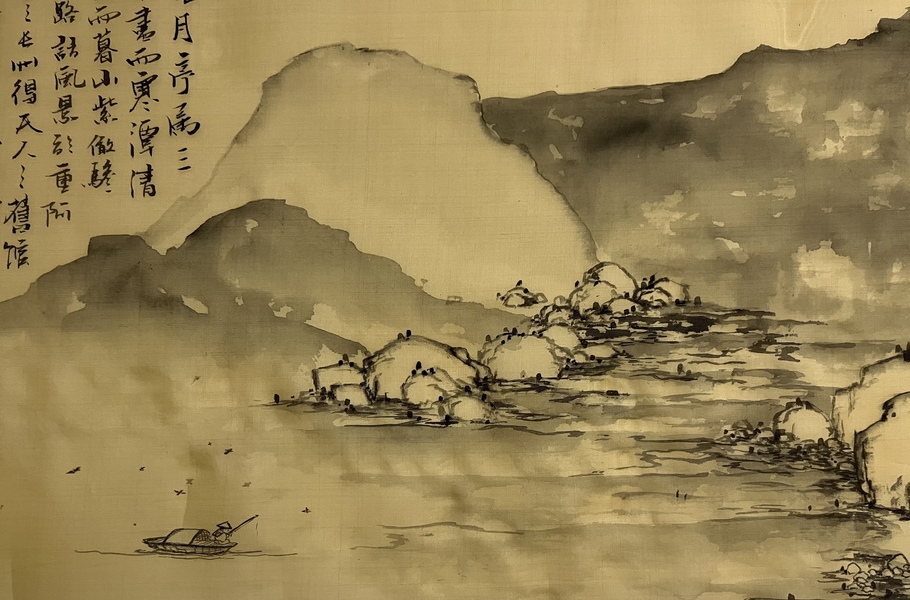 月序属三
盡而寒潭清
而暮山紫儼驂
路訪風景於重阿
之長洲得天人之舊館